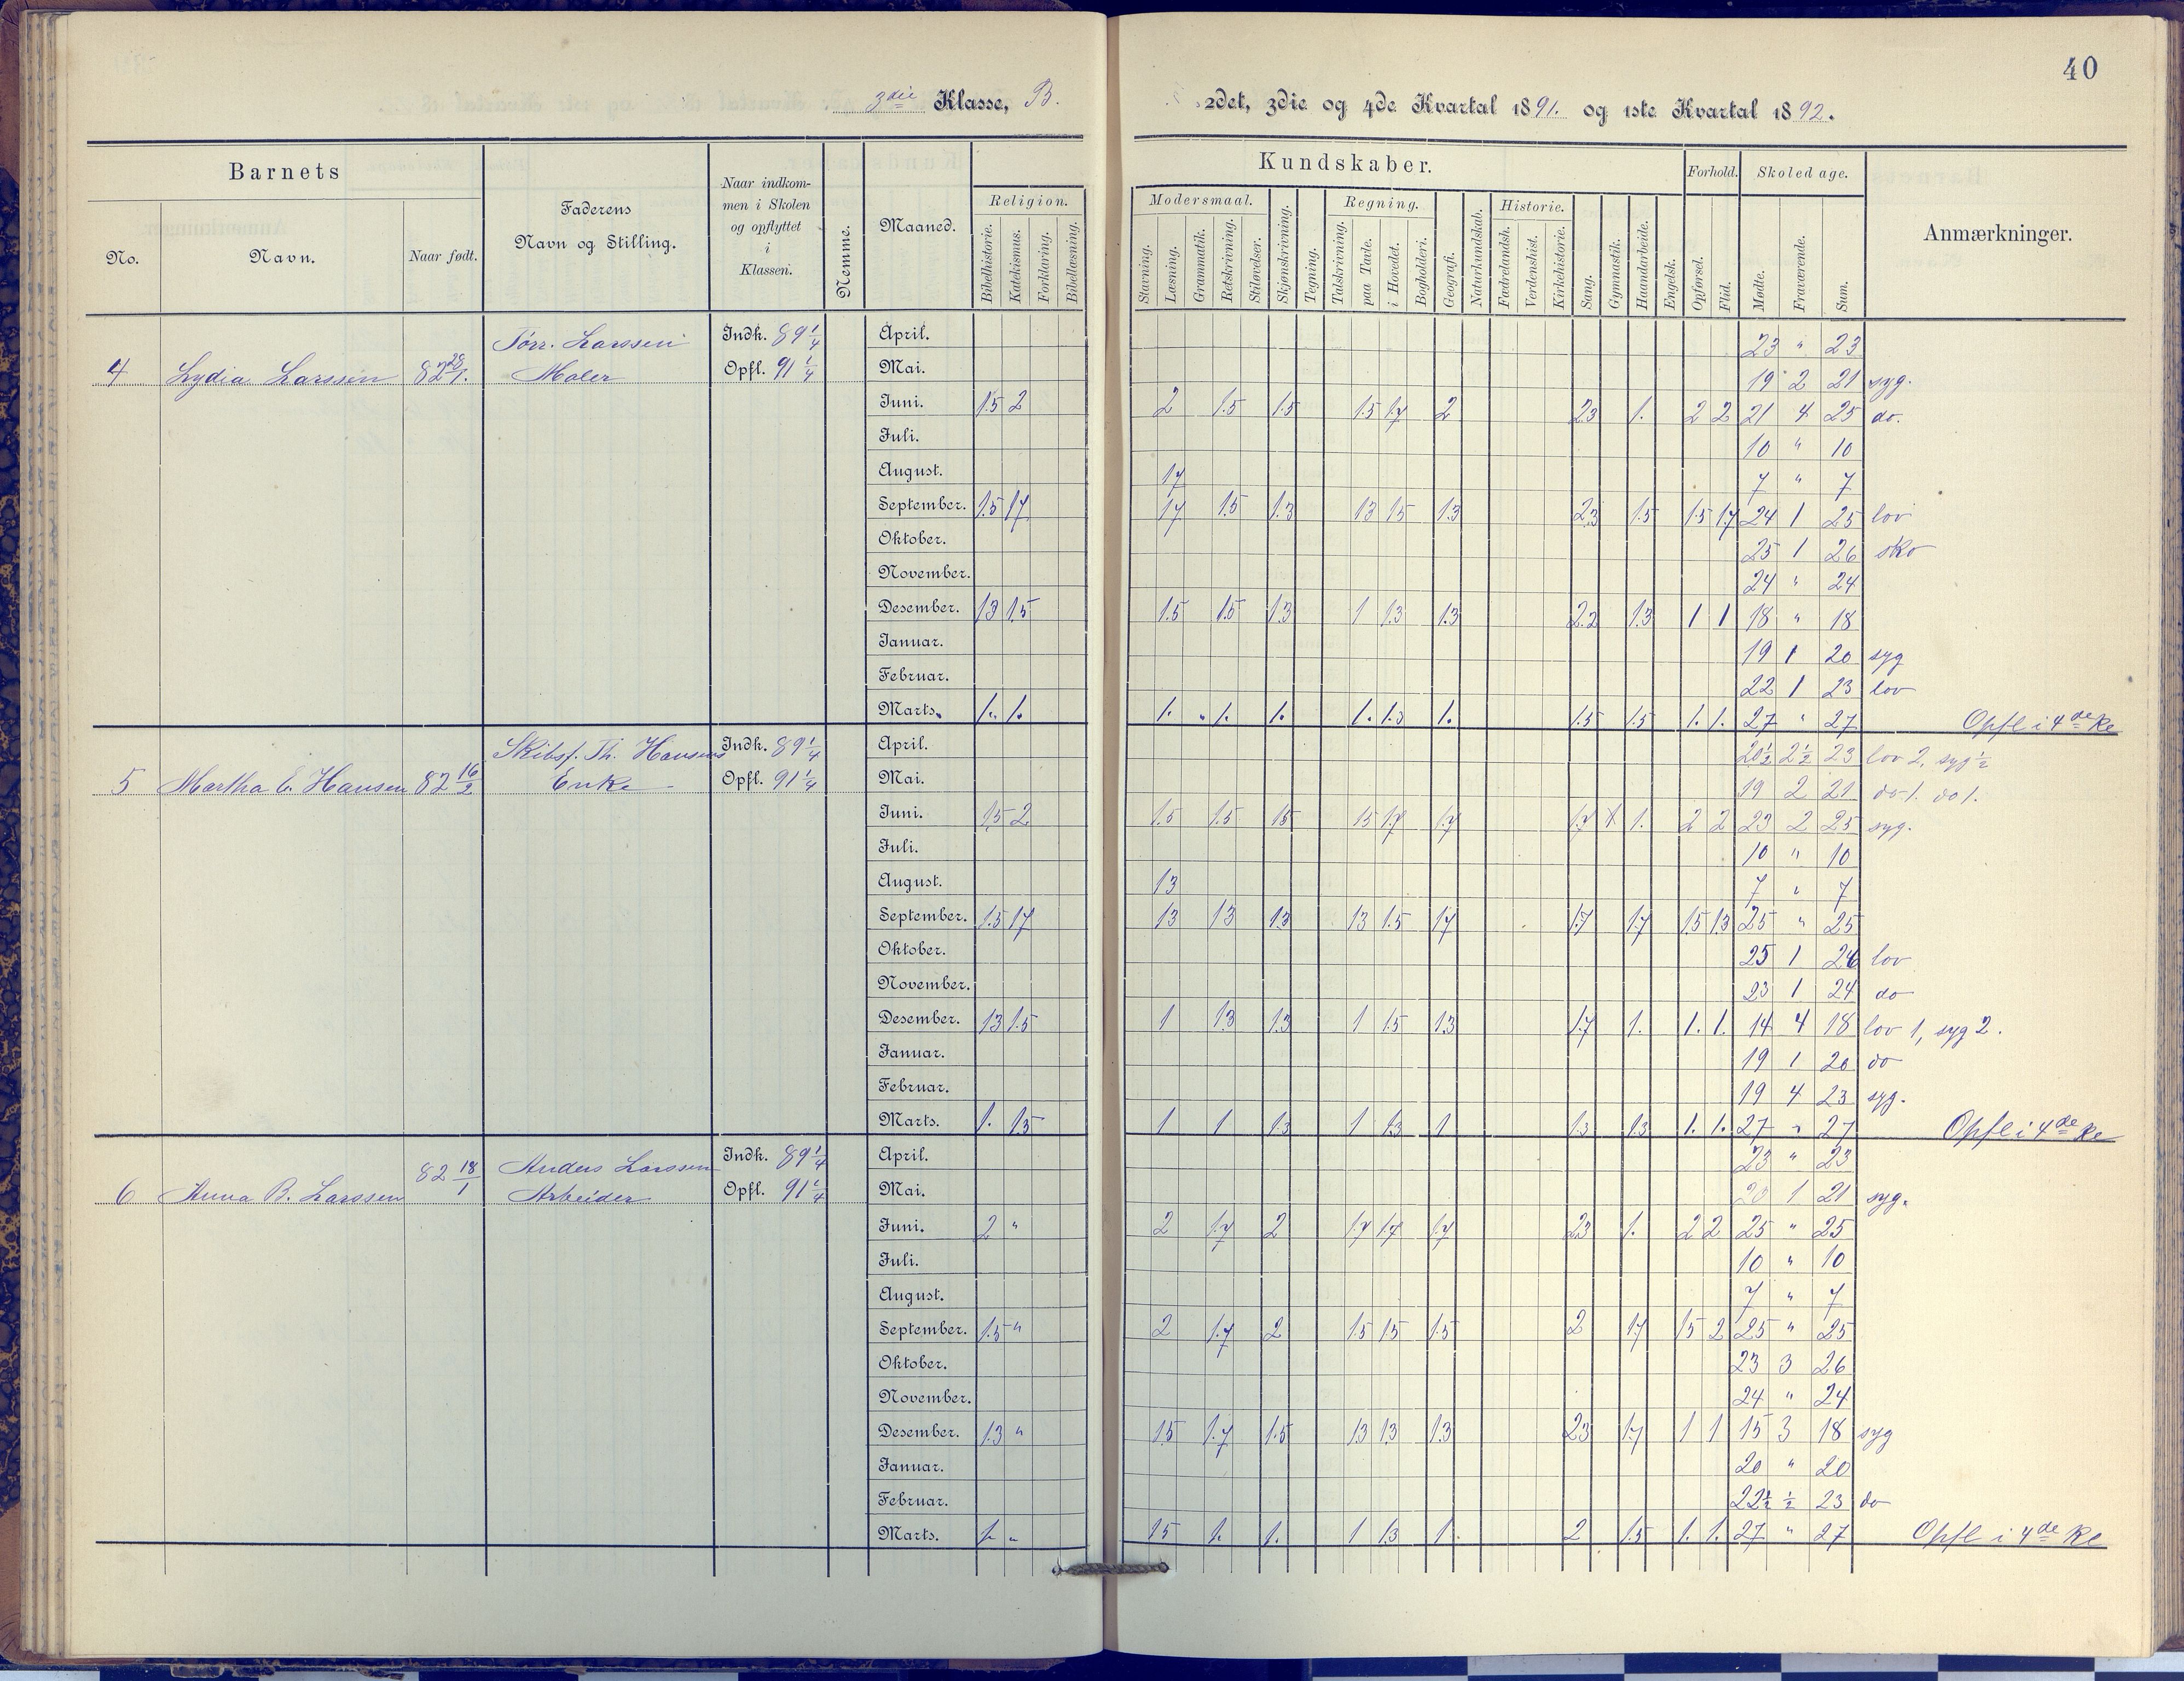 40
3die Klasse, B.
2det, 3die og 4de Kvartal 1891. og 1ste Kvartal 1892.
Barnets
No.
Navn.
Naar født.
Faderens
Navn og Stilling.
Naar indkom-
men i Skolen
og opflyttet
i
Klassen.
Nemme.
Maaned.
Kundskaber.
Religion.
Bibelhistorie.
Katekismus.
Forklaring.
Bibellæsning.
Modersmaal.
Stavning.
Læsning.
Grammatik.
Retskrivning.
Stiløvelser.
Skjønskrivning.
Tegning.
Regning.
Talskrivning.
paa Tavle.
i Hovedet.
Bogholderi.
Geografi.
Naturkundskab.
Historie.
Fædrelandsh.
Verdenshist.
Kirkehistorie.
Sang.
Gymnastik.
Haandarbeide.
Engelsk.
Forhold.
Opførsel.
Flid.
Skoledage.
Mødte.
Fraværende.
Sum.
Anmærkninger.
4 Lydia Larssen 82 Larssen Maler Indk. 89 1/4 Opfl. 91 1/4
April. 23 " 23
Mai. 19 2 21 syg.
Juni. 1.5 2 2 1.5 1.5 1.5 1.7 2 2.3 1. 2 2 21 4 25 do.
Juli. 10 " 10
August. 1.7 7 " 7
September. 1.5 1.7 1.7 1.5 1.3 1.3 1.5 1.3 2.3 1.5 1.5 1.7 24 1 25 lov
Oktober. 25 1 26 sko
November. 24 " 24
Desember. 1.3 1.5 1.5 1.5 1.3 1 1.3 1.3 2.2 1.3 1 1 18 " 18
Januar. 19 1 20 syg
Februar. 22 1 23 lov
Marts. 1. 1. 1. " 1. 1. 1. 1.3 1. 1.5 1.5 1. 1. 27 " 27 Opfl i 4de Kl
5 Martha E. Hansen 82 16/2 Skibsf. Th. Hansens Enke Indk. 89 1/4 Opfl. 91 1/4
April. 20 1/2 2 1/2 23 lov 2, syg 1/2
Mai. 19 2 21 do 1. do 1.
Juni. 1.5 2 1.5 1.5 1.5 1.5 1.7 1.7 1.7 1. 2 2 23 2 25 syg.
Juli. 10 " 10
August. 1.3 7 " 7
September. 1.5 1.7 1.3 1.3 1.3 1.3 1.5 1.7 1.7 1.7 1.5 1.3 25 " 25
Oktober. 25 1 26 lov
November. 23 1 24 do
Desember. 1.3 1.5 1 1.3 1.3 1 1.5 1.3 1.7 1. 1. 1. 14 4 18 lov 1, syg 2.
Januar. 19 1 20 do
Februar. 19 4 23 syg.
Marts. 1. 1.3 1 1 1.3 1 1.3 1 1.3 1.3 1. 1. 27 " 27 Opfl i 4de Kl
6 Anna B. Larssen 82 18/1 Anders Larssen Arbeider Indk. 89 1/4 Opfl. 91 1/4
April. 23 " 23
Mai. 20 1 21 syg.
Juni. 2 " 2 1.7 2 1.7 1.7 1.7 2.3 1. 2 2 25 " 25
Juli. 10 " 10
August. 7 " 7
September. 1.5 " 2 1.7 2 1.5 1.5 1.5 2 1.7 1.5 2 25 " 25
Oktober. 23 3 26
November. 24 " 24
Desember. 1.3 " 1.5 1.7 1.5 1.3 1.3 1.3 2.3 1.7 1 1 15 3 18 syg
Januar. 20 " 20
Februar. 22 1/2 1/2 23 do
Marts. 1. " 1.5 1. 1. 1 1.3 1. 2 1.5 1. 1. 27 " 27 Opfl i 4de Kl